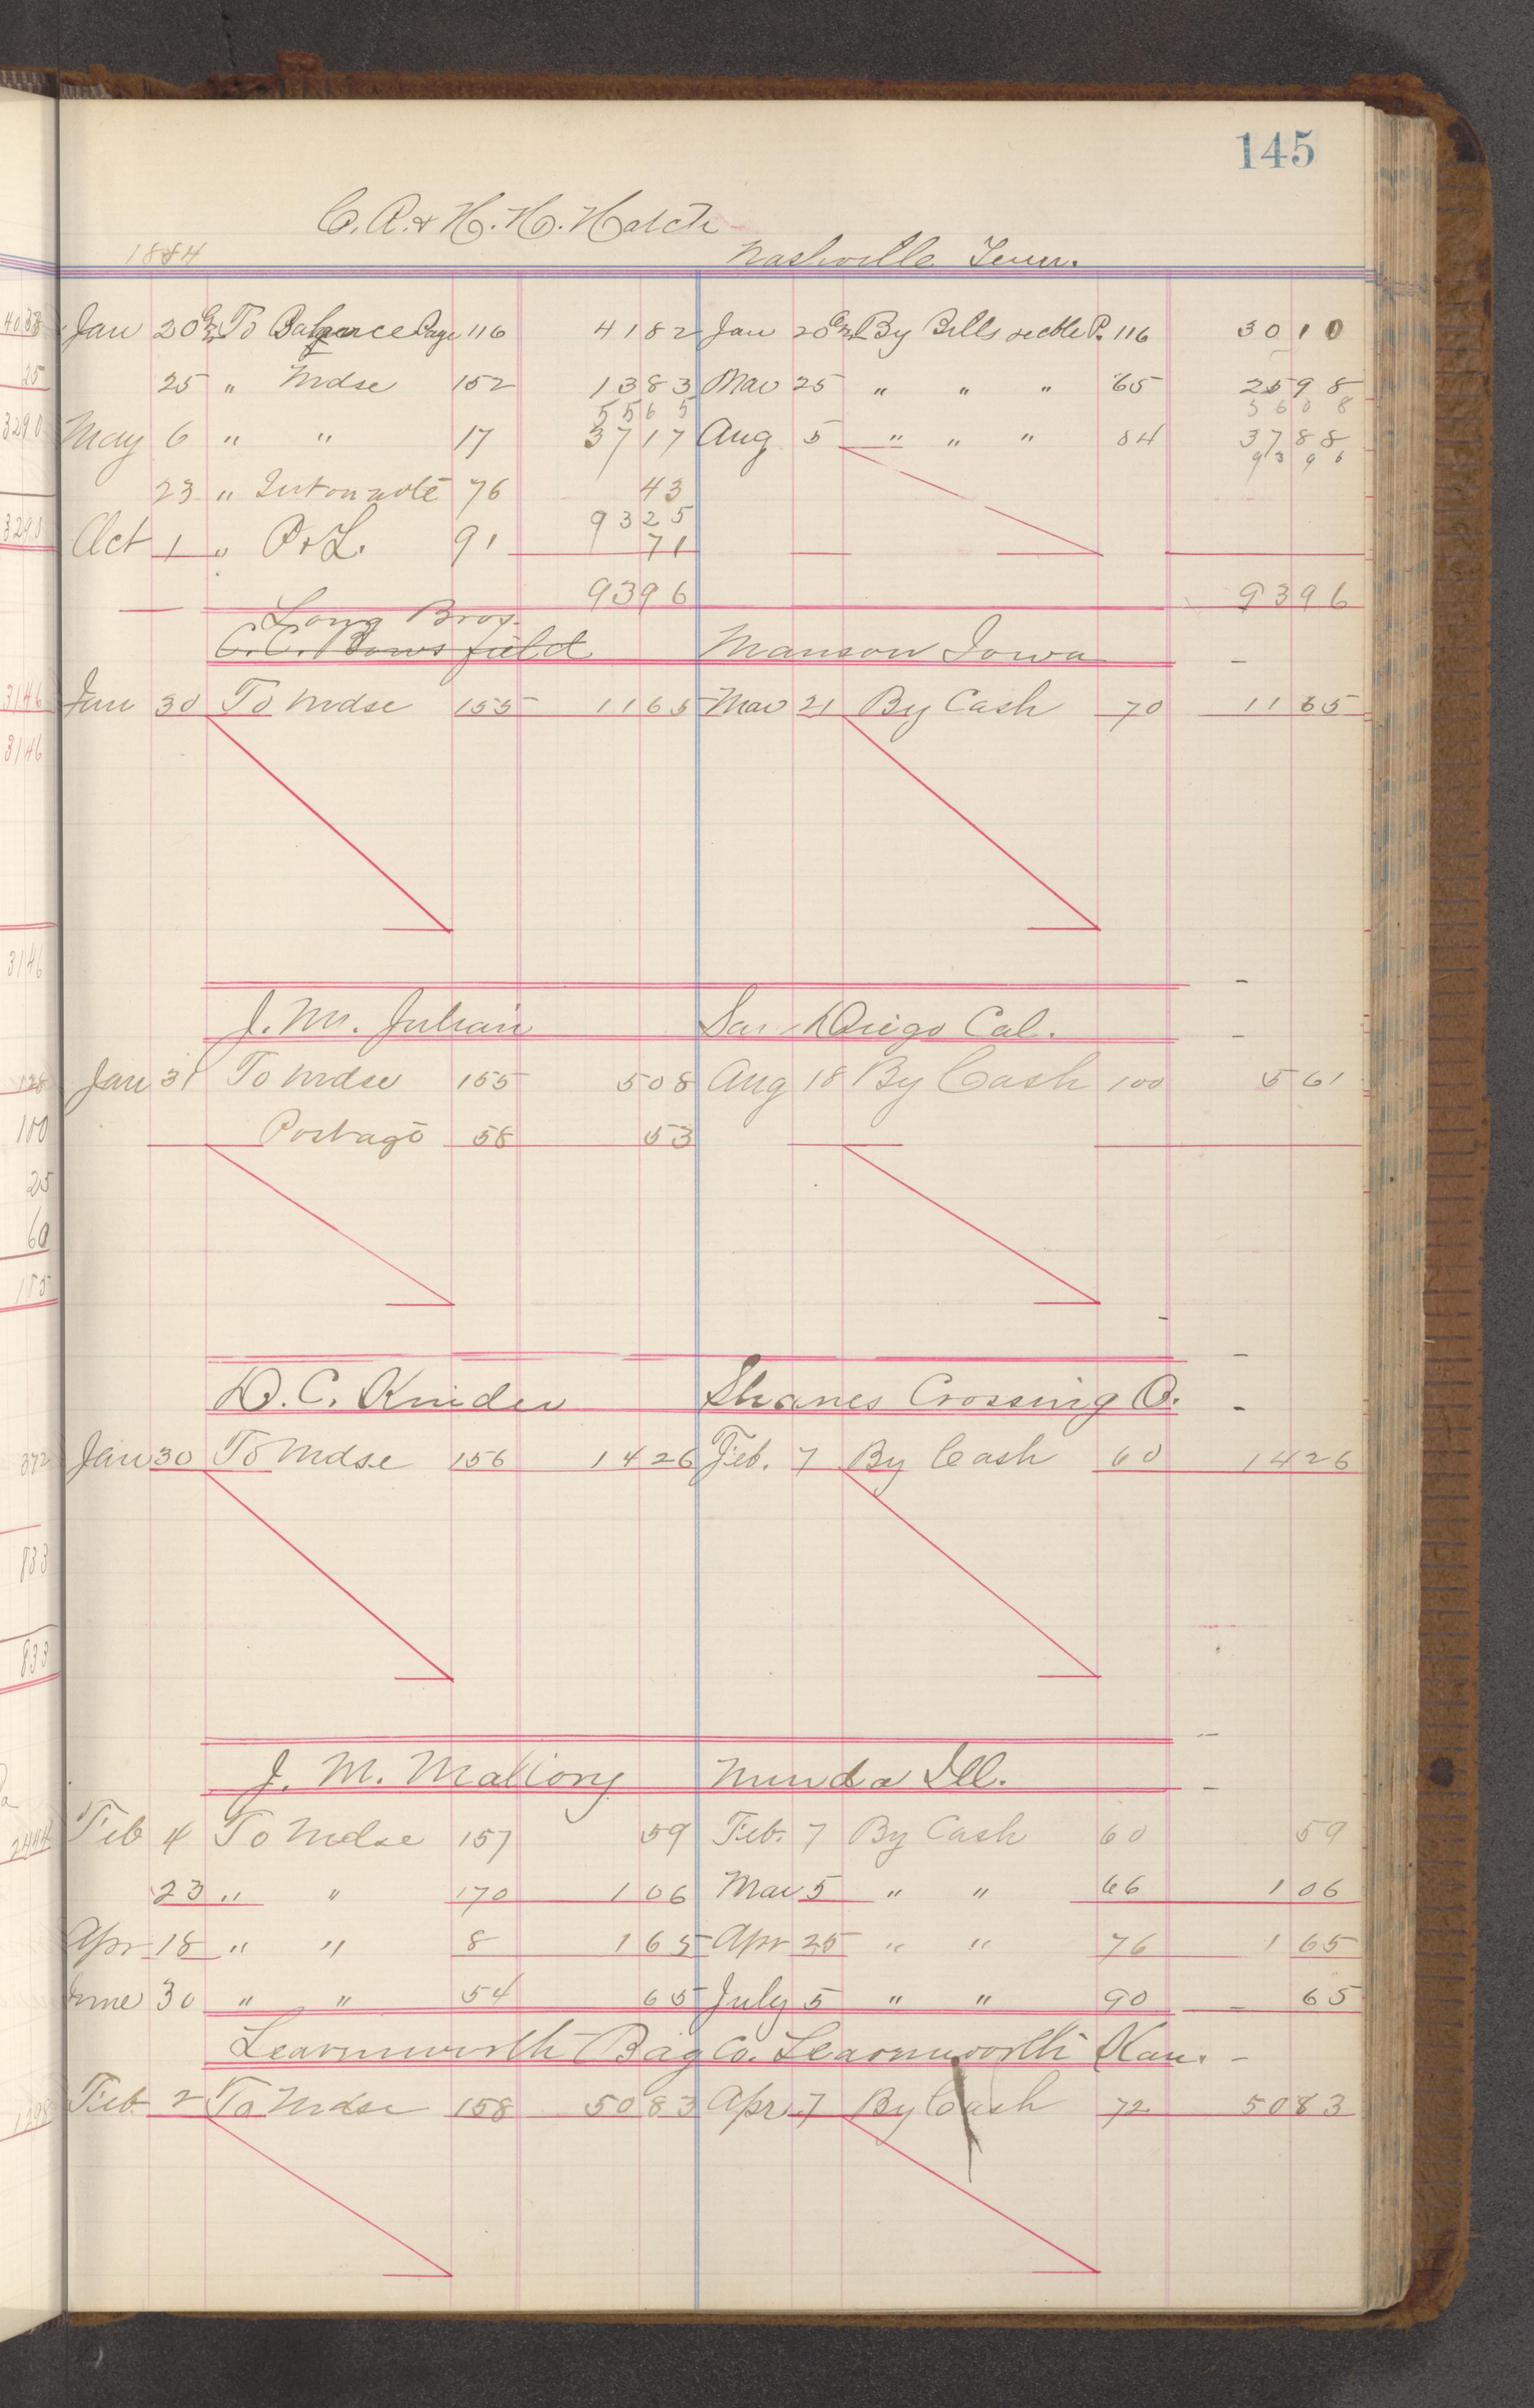 145
C. R. & H. H. Hatch
1884 Nashville Tenn.
Jan 20 To Balance Page 116 4182 Jan 20 By Bills recble P. 116 3010
25 " Mdse 152 1383 Mar 25 " " " 65 2598
5565 5608
May 6 " " 17 3717 Aug 5 " " " 84 3788
9396
23 " Int on note 76 43
9325
Oct 1 " P & L. 91 71
9396 9396
Long Bros.
C. C. Bowsfield Manson Iowa
Jan 30 To Mdse 155 1165 Mar 21 By Cash 70 1165
J. M. Julian San Diego Cal.
Jan 31 To Mdse 155 508 Aug 18 By Cash 100 561
Postage 58 53
D. C. Knider Shanes Crossing O.
Jan 30 To Mdse 156 1426 Feb. 7 By Cash 60 1426
J. M. Mallory Nunda Ill.
Feb 4 To Mdse 157 59 Feb. 7 By Cash 60 59
23 " " 170 106 Mar 5 " " 66 106
Apr 18 " " 8 165 Apr 25 " " 76 165
June 30 " " 54 65 July 5 " " 90 65
Leavenworth Bag Co. Leavenworth Kan.
Feb. 2 To Mdse 158 5083 Apr 7 By Cash 72 5083